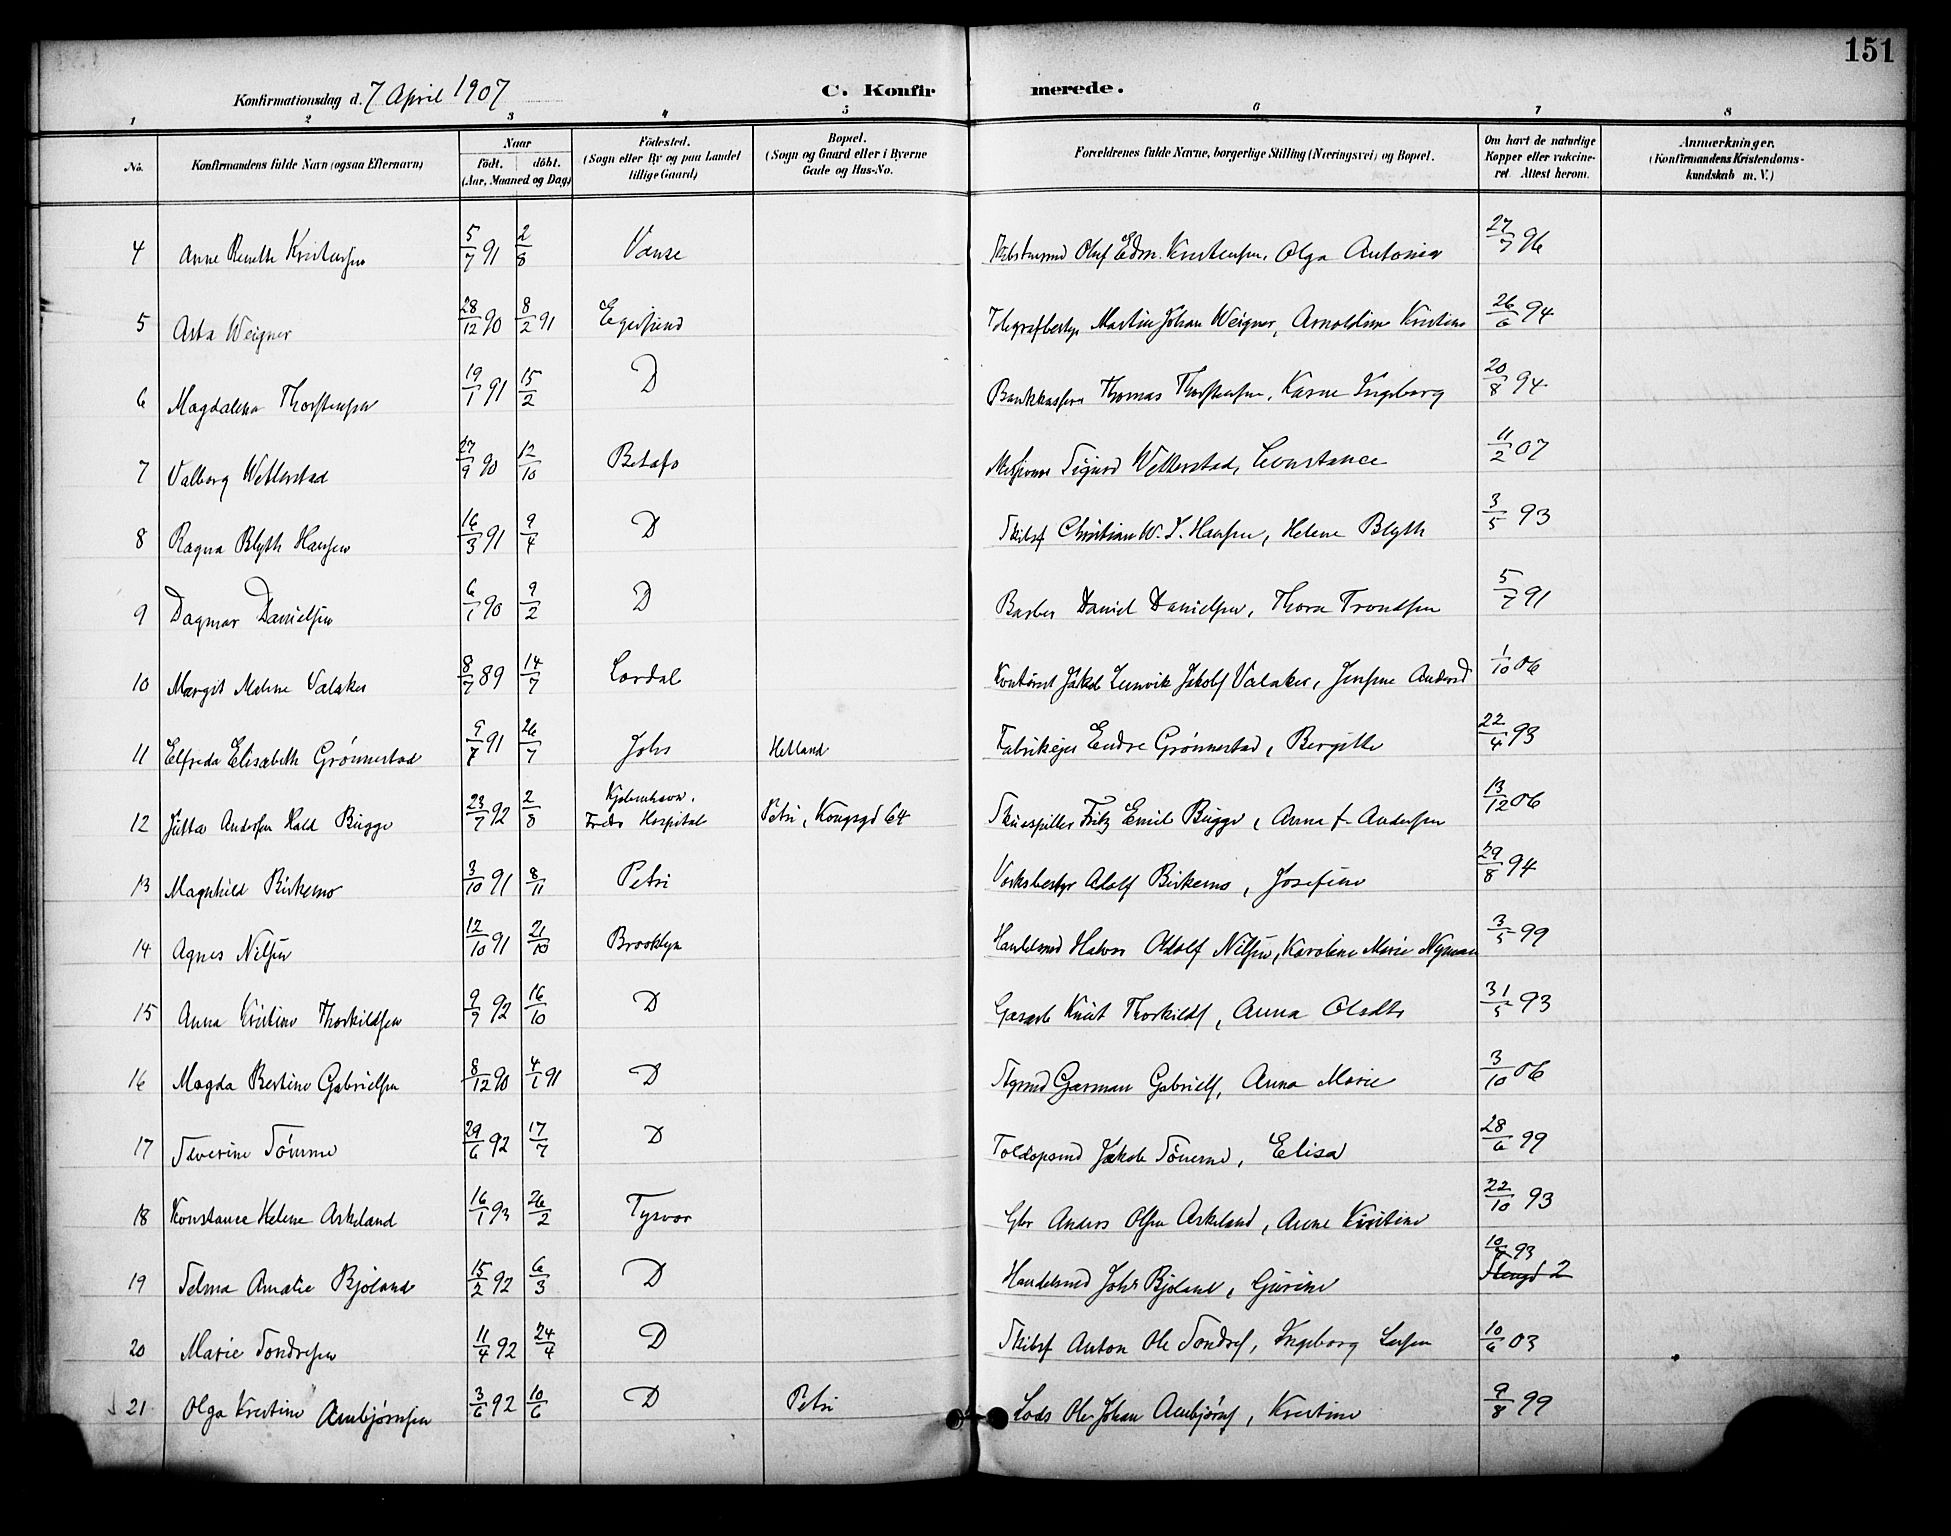 151
Konfirmationsdag d. 7 April 1907
C. Konfirmerede.
1 2 3 4 5 6 7 8
No.
Konfirmandens fulde Navn (ogsaa Efternavn)
Naar
födt. döbt.
(Aar, Maaned og Dag)
Födested.
(Sogn eller By og paa Landet
tillige Gaard)
Bopæl.
(Sogn og Gaard eller i Byerne
Gade og Hus-No.
Forældrenes fulde Navne, borgerlige Stilling (Næringsvei) og Bopæl.
Om havt de naturlige
Kopper eller vakcine-
ret Attest herom.
Anmærkninger.
(Konfirmandens Kristendoms-
kundskab m. V.)
4 Anne Kristensen 5/7 91 2/8 Vanse Olaf Edm. Kristensen, Olga Antonia 27/7 96
5 Asta Weigner 28/12 90 8/2 91 Egersund Telegrafbestyr Martin Johan Weigner, Arnoldine Kristine 26/6 94
6 Magdalena Thorstensen 19/1 91 15/2 D Bankkasserer Thomas Thorstensen, Karen Ingeborg 20/8 94
7 Valborg Wetterstad 27/9 90 12/10 Betafo Missionær Sigurd Wetterstad, Constance 11/2 07
8 Ragna Blyth Hansen 16/3 91 9/4 D Skibsf Christian W. Hansen, Helene Blyth 3/5 93
9 Dagmar Danielsen 6/1 90 9/2 D Barber Daniel Danielsen, Thora Trondsen 5/7 91
10 Margit Malene Valaker 8/7 89 14/7 Lardal Kontorist Jakob Jakobs Valaker, Andersd 1/10 06
11 Elfreda Elisabeth Grönnestad 9/7 91 26/7 Johs Hetland Fabrikejer Endre Grönnestad, Bergitte 22/4 93
12 Jutta Andersen Hald Bugge 23/7 92 2/8 Kjøbenhavn. Freds Hospital Petri, Kongsgd 64 Skuespiller Fritz Emil Bugge, Anna f. Andersen 13/12 06
13 Magnhild Birkemo 3/10 91 8/11 Petri Verksbestyr Adolf Birkemo, Josefine 29/8 94
14 Agnes Nilsen 12/10 91 21/10 Brooklyn Handelsmd Halvor Adolf Nilsen, Karoline Marie Nyman 3/5 99
15 Anna Kristine Thorkildsen 9/9 92 16/10 D Gasarb Knut Thorkilds, Anna Olsdtr 31/5 93
16 Magda Bertine Gabrielsen 8/12 90 4/1 91 D Styrmd Garman Gabriels, Anna Marie 3/10 06
17 Severine Tönne 29/6 92 17/7 D Toldopsmd Jakob Elisa 28/6 99
18 Konstance Helene Askeland 16/1 93 26/2 Tysvær Gbr Anders Olsen Askeland, Anne Kristine 22/10 93
19 Selma Amalie Bjöland 15/2 92 6/3 D Handelsmd Johs Bjöland, Gurine 93
20 Marie Tondresen 11/4 92 24/4 D Skibsf Anton Ole Tondres, Ingeborg 10/6 03
21 Olga Kristine Arnbjörnsen 3/6 92 10/6 D Petri Lods Ole Johan Arnbjörns, Kristine 9/8 99